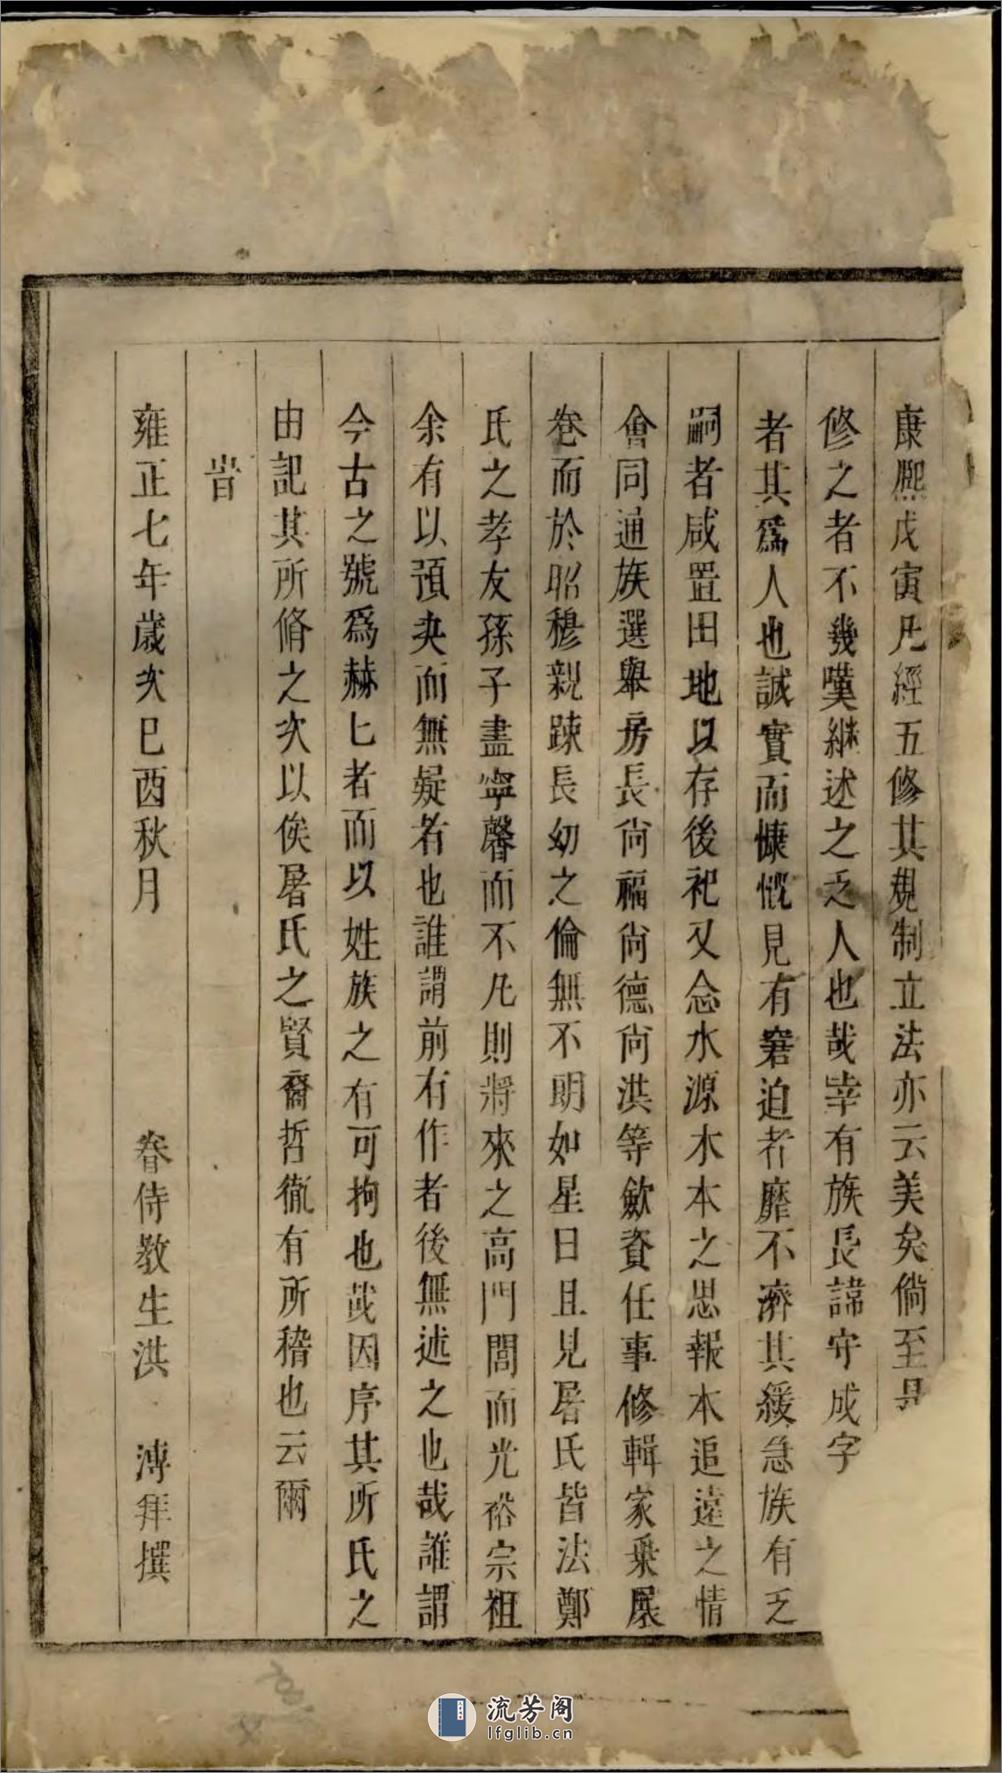 康熙戊寅凡經五修其規制立法亦云美矣倘至
修之者不幾嘆継述之乏人也哉幸有族長諱守成字
者其爲人也誠實而慷慨見有窘迫者靡不濟其緩急族有乏
嗣者咸置田地以存後祀又念水源木本之思報本追遠之情
會同通族選舉房長尚福尚德尚洪等歛資任事修輯家乗展
卷而於昭穆親踈長幼之倫無不明如星日且見屠氏皆法鄭
氏之孝友孫子盡寧馨而不凡則將來之高門閭而光裕宗祖
余有以預夬而無疑者也誰謂前有作者後無述之也哉誰謂
今古之號爲赫匕者而以姓族之有可拘也哉因序其所氏之
由記其所脩之次以俟屠氏之賢裔哲徹有所稽也云爾
旹
雍正七年歲次己酉秋月 眷侍教生洪 溥拜撰
流芳阁
lfglib.cn